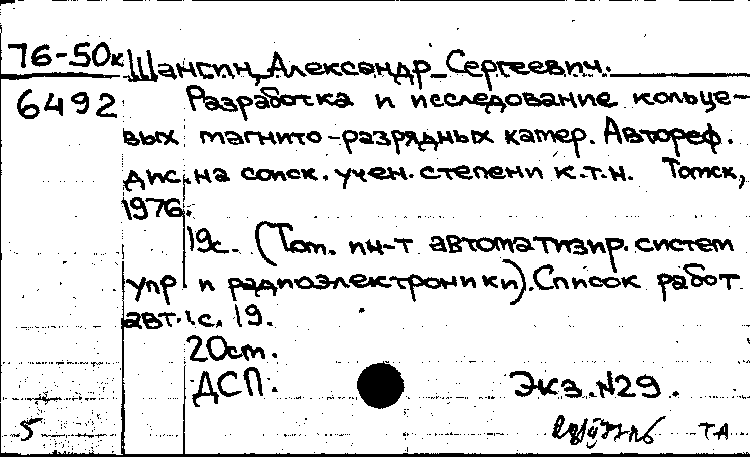 76-50к Шангин, Александр Сергеевич.
6492 Разработка и исследование кольце-
вых магнито-разрядных камер. Автореф.
дис. на соиск. учен. степени к.т.н. Томск,
1976.
19с. (Том. ин-т автоматизир. систем
упр. и радиоэлектроники). Список работ
авт.: с. 19.
20ст.
ДСП. Экз. №29.
5 ТА